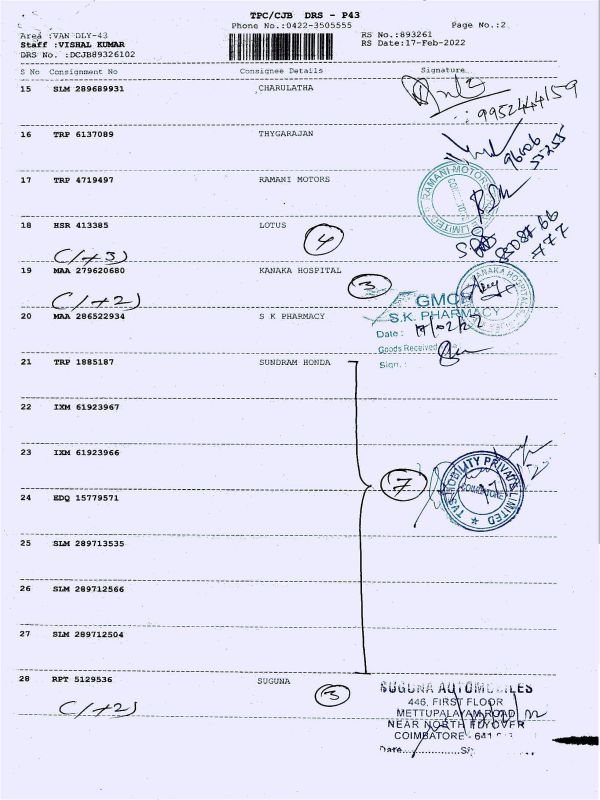 TPC/CJB DRS - P43
Phone No.:0422-3505555 Page No.:2
Area :VAN DLY-43 RS No.:893261
Staff :VISHAL KUMAR RS Date:17-Feb-2022
DRS No. :DCJB89326102
S No Consignment No Consignee Details Signature
15 SLM 289689931 CHARULATHA
9952444159
16 TRP 6137089 THYGARAJAN
96006
55255
17 TRP 4719497 RAMANI MOTORS
RAMANI MOTORS LIMITED
18 HSR 413385 LOTUS 4
(1+3)
19 MAA 279620680 KANAKA HOSPITAL 3
KANAKA HOSPITAL
(1+2)
20 MAA 286522934 S K PHARMACY
S.K. PHARMACY
Date : 17/02/22
Goods Received
Sign. :
21 TRP 1885187 SUNDRAM HONDA
22 IXM 61923967
23 IXM 61923966
24 EDQ 15779571 7
TVS MOBILITY PRIVATE LIMITED
COIMBATORE
25 SLM 289713535
26 SLM 289712566
27 SLM 289712504
28 RPT 5129536 SUGUNA 3
(1+2)
SUGUNA AUTOMOBILES
446, FIRST FLOOR
METTUPALAYAM ROAD
NEAR NORTH FLYOVER
COIMBATORE - 641
Date